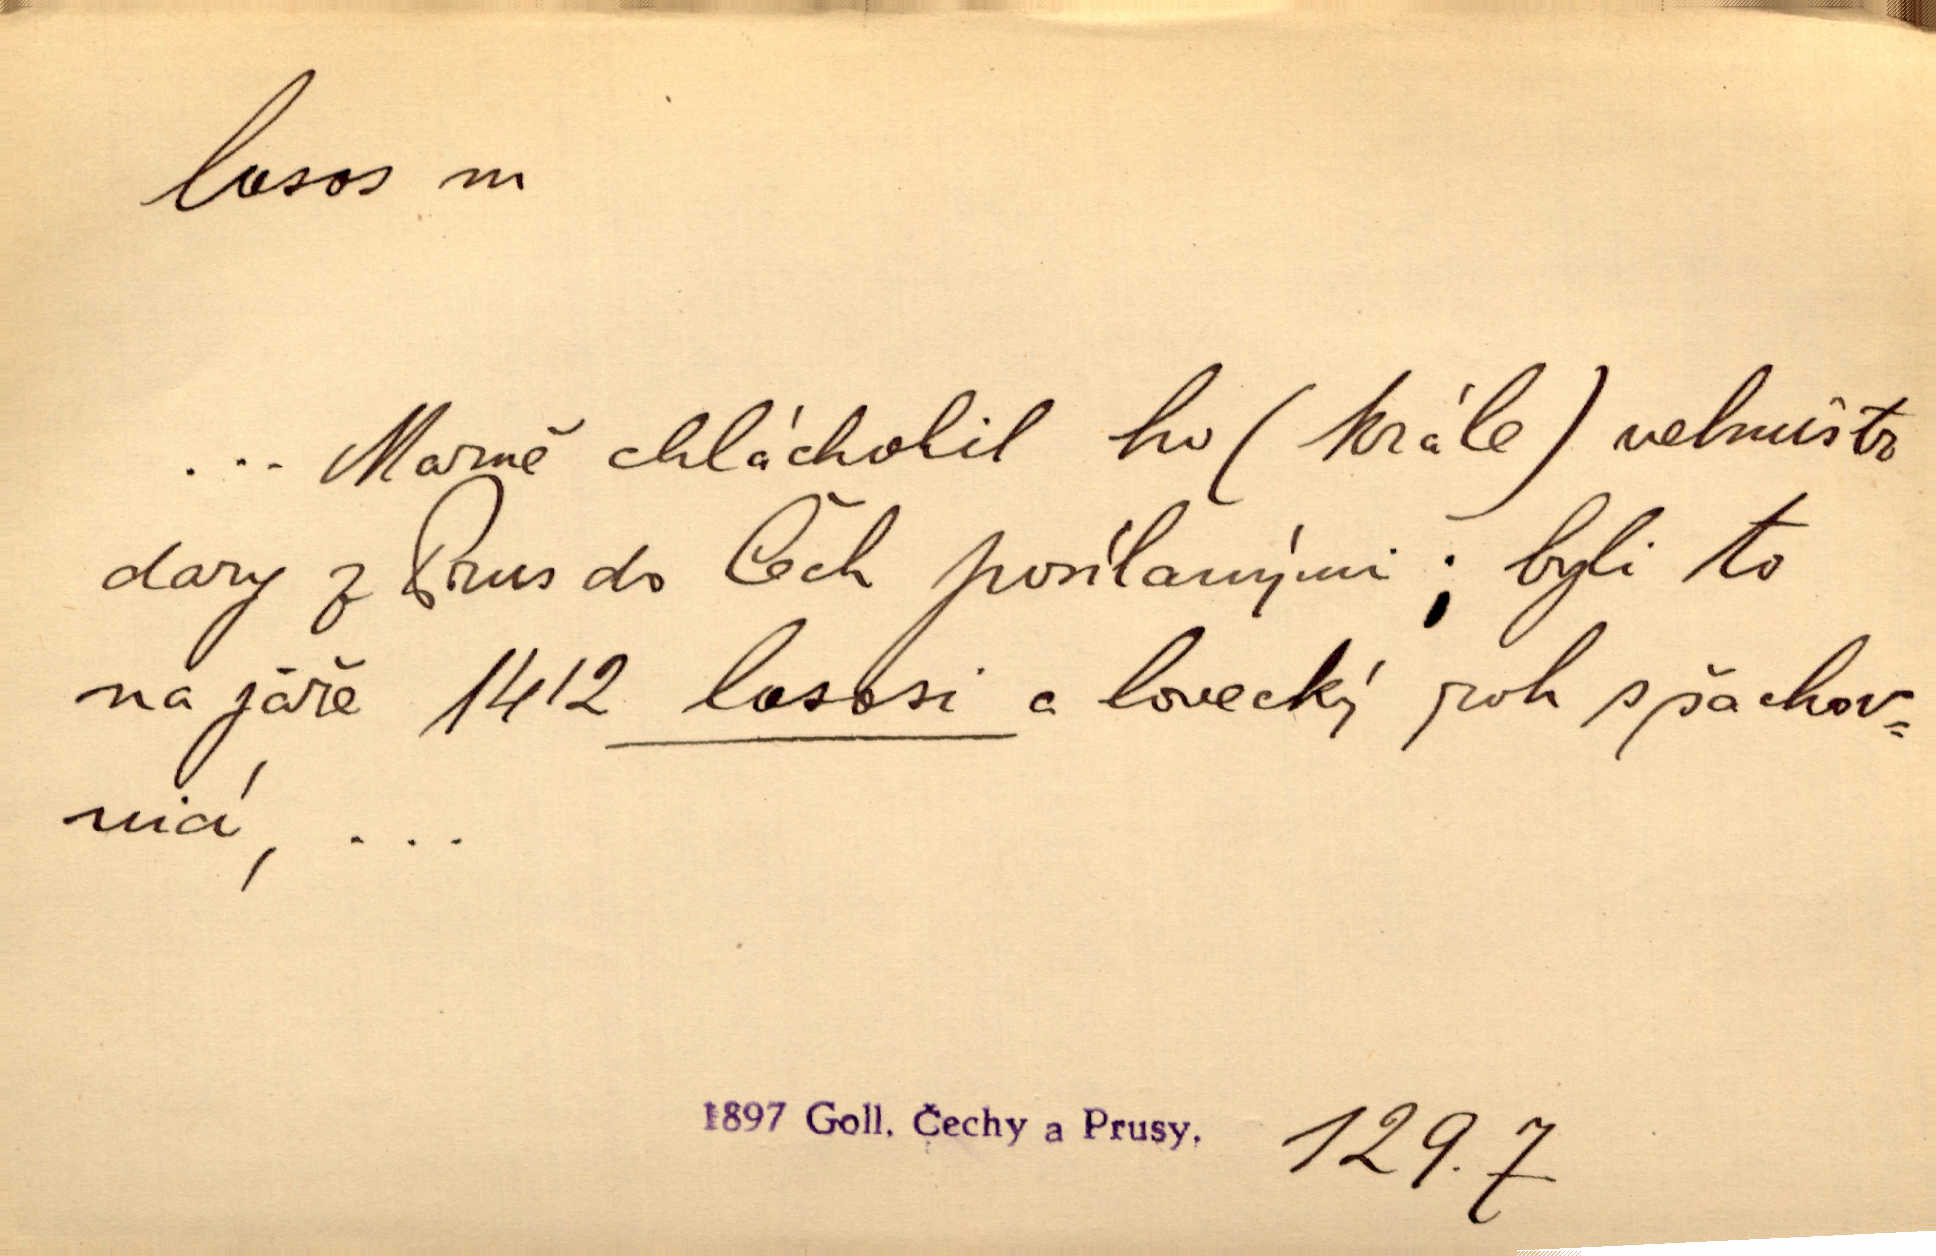 losos m
... Marně chlácholil ho (krále) velmistr
dary z Prus do Čech posílanými; byli to
na jaře 1412 lososi a lovecký roh s šachov=
nicí, ...
1897 Goll. Čechy a Prusy. 129.7